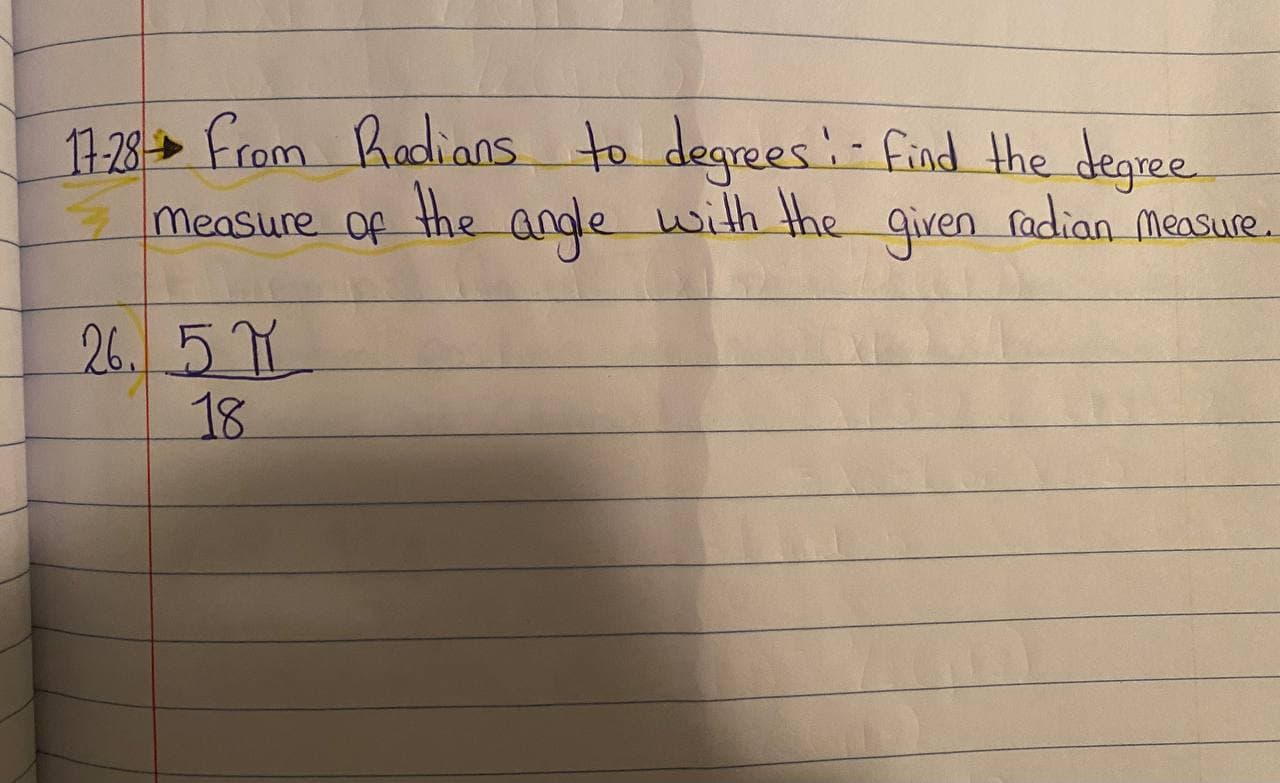 17-28→ From Radians to degrees:- Find the degree
measure of the angle with the given radian measure.
26. 5π
18